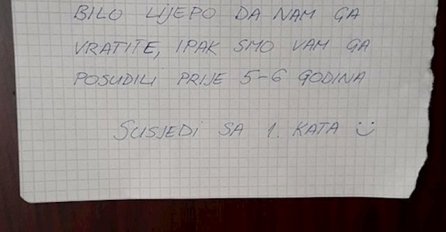 BILO LIJEPO DA NAM GA
VRATITE, IPAK SMO VAM GA
POSUDILI PRIJE 5-6 GODINA
SUSJEDI SA 1. KATA :)